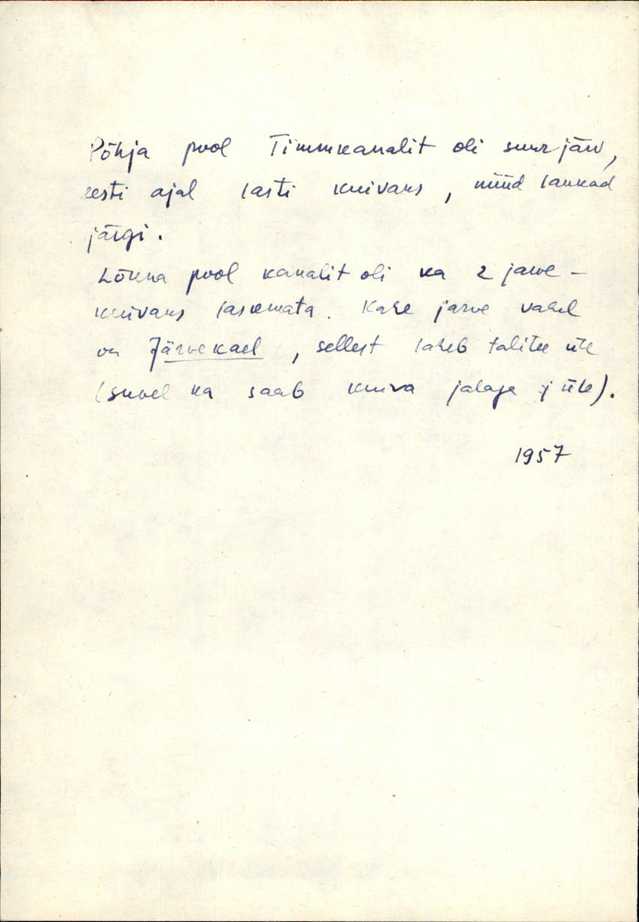 Põhja pool Timmkanalit oli suur järv,
eesti ajal lasti kuivaks, nüüd lankad
järgi.
Lõuna pool kanalit oli ka 2 järve –
kuivaks laskmata. Kahe järve vahel
on Järvekael, sellest läheb talitee üle
(suvel ka saab kuiva jalaga üle).
1957